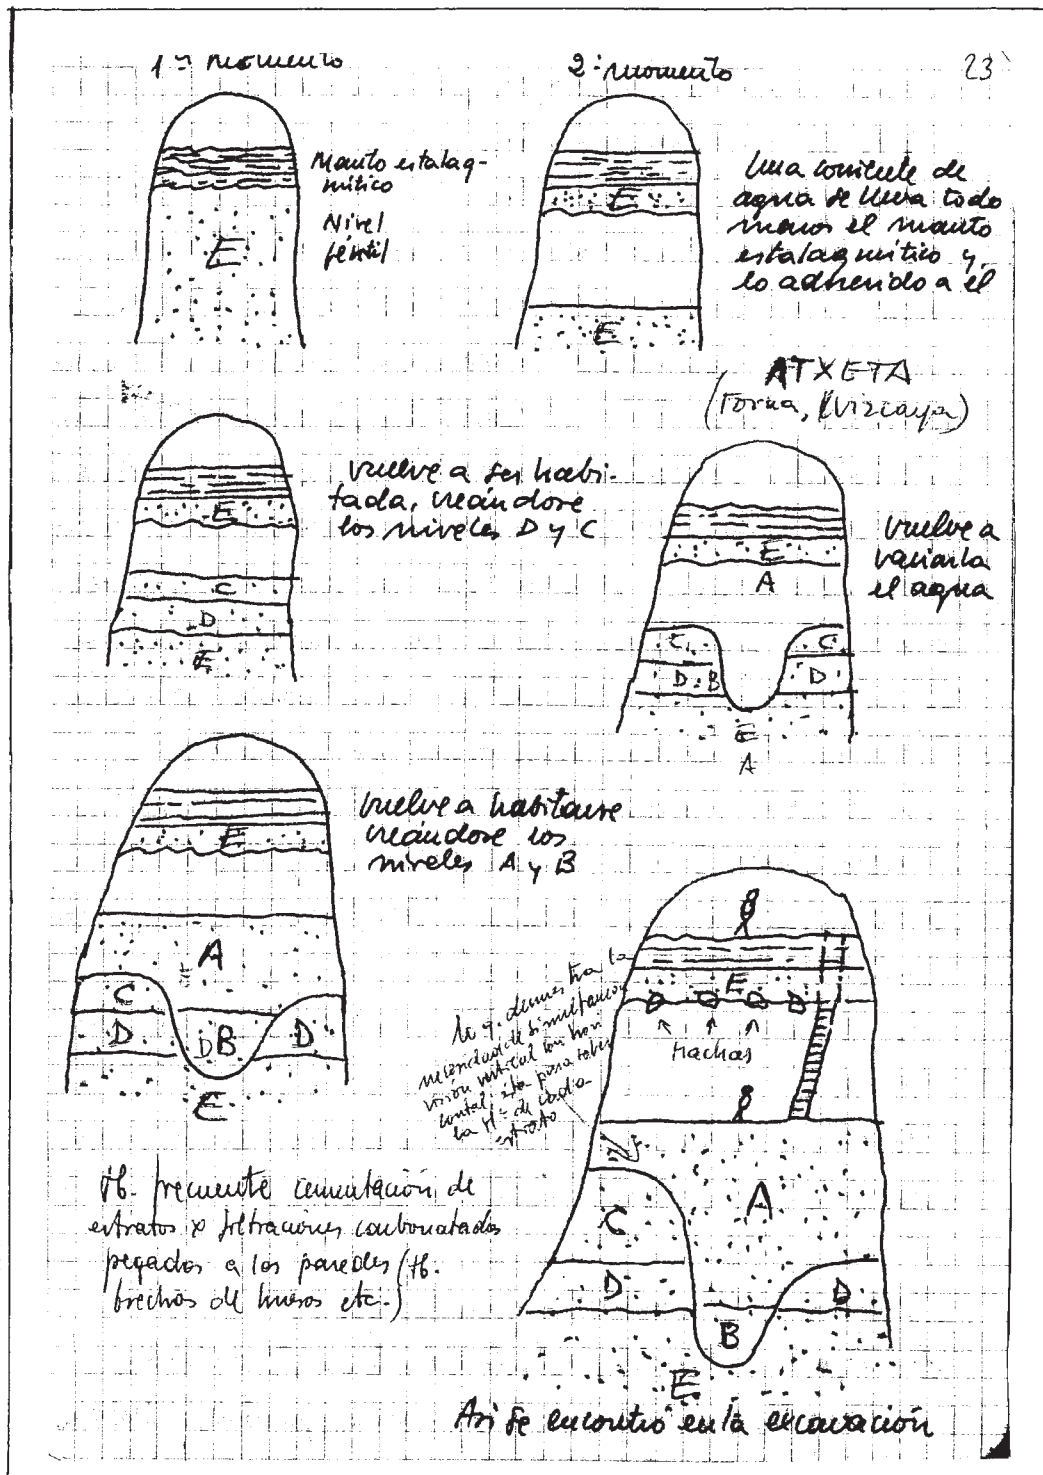 1er momento
2º momento
23
Manto estalag-
mítico
Nivel
fértil
E
Una corriente de
agua se lleva todo
menos el manto
estalagmítico y
lo adherido a él
E
E
ATXETA
(Forua, Vizcaya)
vuelve a ser habi-
tada, creándose
los niveles D y C
E
C
D
E
vuelve a
vaciarla
el agua
E
A
C C
D B D
E
A
vuelve a habitarse
creándose los
niveles A y B
E
A
C
D D B D
E
lo q. demuestra la
necesidad de simultanear
visión vertical con hori
zontal, ésta para saber
la Hª de cada
estrato
E
Hachas
A
C
D D
B
E
Tb. frecuente cementación de
estratos x filtraciones carbonatadas
pegados a las paredes (tb.
brechas de huesos etc.)
Así se encontró en la excavación